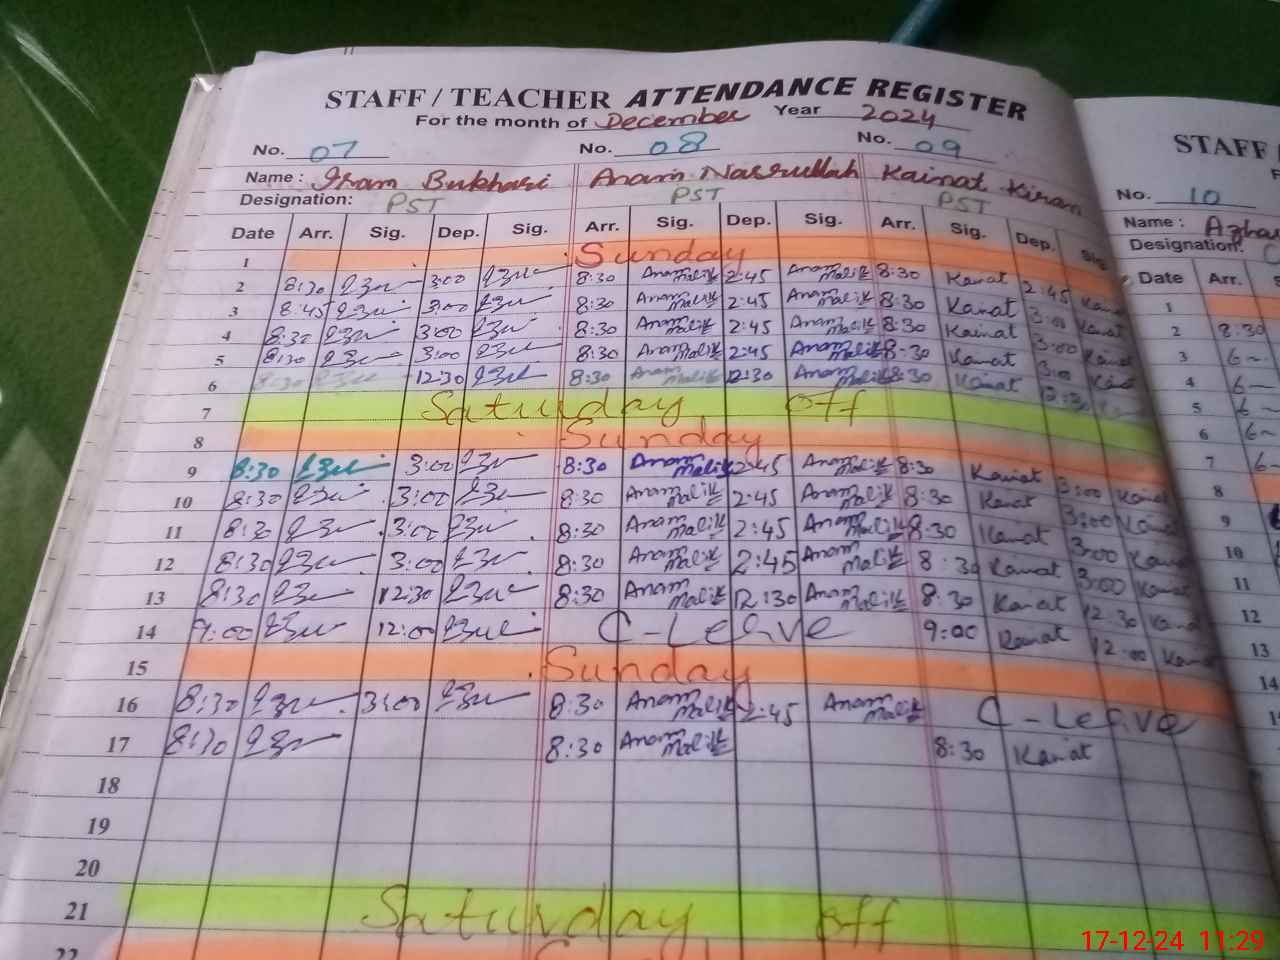 STAFF / TEACHER ATTENDANCE REGISTER
For the month of December Year 2024
No. 07 No. 08 No. 09
Name : Iram Bukhari Anam Nasrullah Kainat Kiran
Designation: PST PST PST
Date Arr. Sig. Dep. Sig. Arr. Sig. Dep. Sig. Arr. Sig. Dep. Sig.
1 Sunday
2 8:30 3:00 8:30 Anam Malik 2:45 Anam Malik 8:30 Kainat 2:45 Kainat
3 8:45 3:00 8:30 Anam Malik 2:45 Anam Malik 8:30 Kainat 3:00 Kainat
4 8:30 3:00 8:30 Anam Malik 2:45 Anam Malik 8:30 Kainat 3:00 Kainat
5 8:30 3:00 8:30 Anam Malik 2:45 Anam Malik 8:30 Kainat 3:00 Kainat
6 8:30 12:30 8:30 Anam Malik 12:30 Anam Malik 8:30 Kainat 12:30
7 Saturday off
8 Sunday
9 8:30 3:00 8:30 Anam Malik 2:45 Anam Malik 8:30 Kainat 3:00 Kainat
10 8:30 3:00 8:30 Anam Malik 2:45 Anam Malik 8:30 Kainat 3:00 Kainat
11 8:30 3:00 8:30 Anam Malik 2:45 Anam Malik 8:30 Kainat 3:00 Kainat
12 8:30 3:00 8:30 Anam Malik 2:45 Anam Malik 8:30 Kainat 3:00 Kainat
13 8:30 12:30 8:30 Anam Malik 12:30 Anam Malik 8:30 Kainat 12:30 Kainat
14 9:00 12:00 C-Leave 9:00 Kainat 12:00 Kainat
15 Sunday
16 8:30 3:00 8:30 Anam Malik 2:45 Anam Malik C-Leave
17 8:30 8:30 Anam Malik 8:30 Kainat
18
19
20
21 Saturday off
22
STAFF /
No. 10
Name :
Designation:
Date Arr.
1
2 8:30
3
4
5
6
7
8
9
10
11
12
13
14
17-12-24 11:29